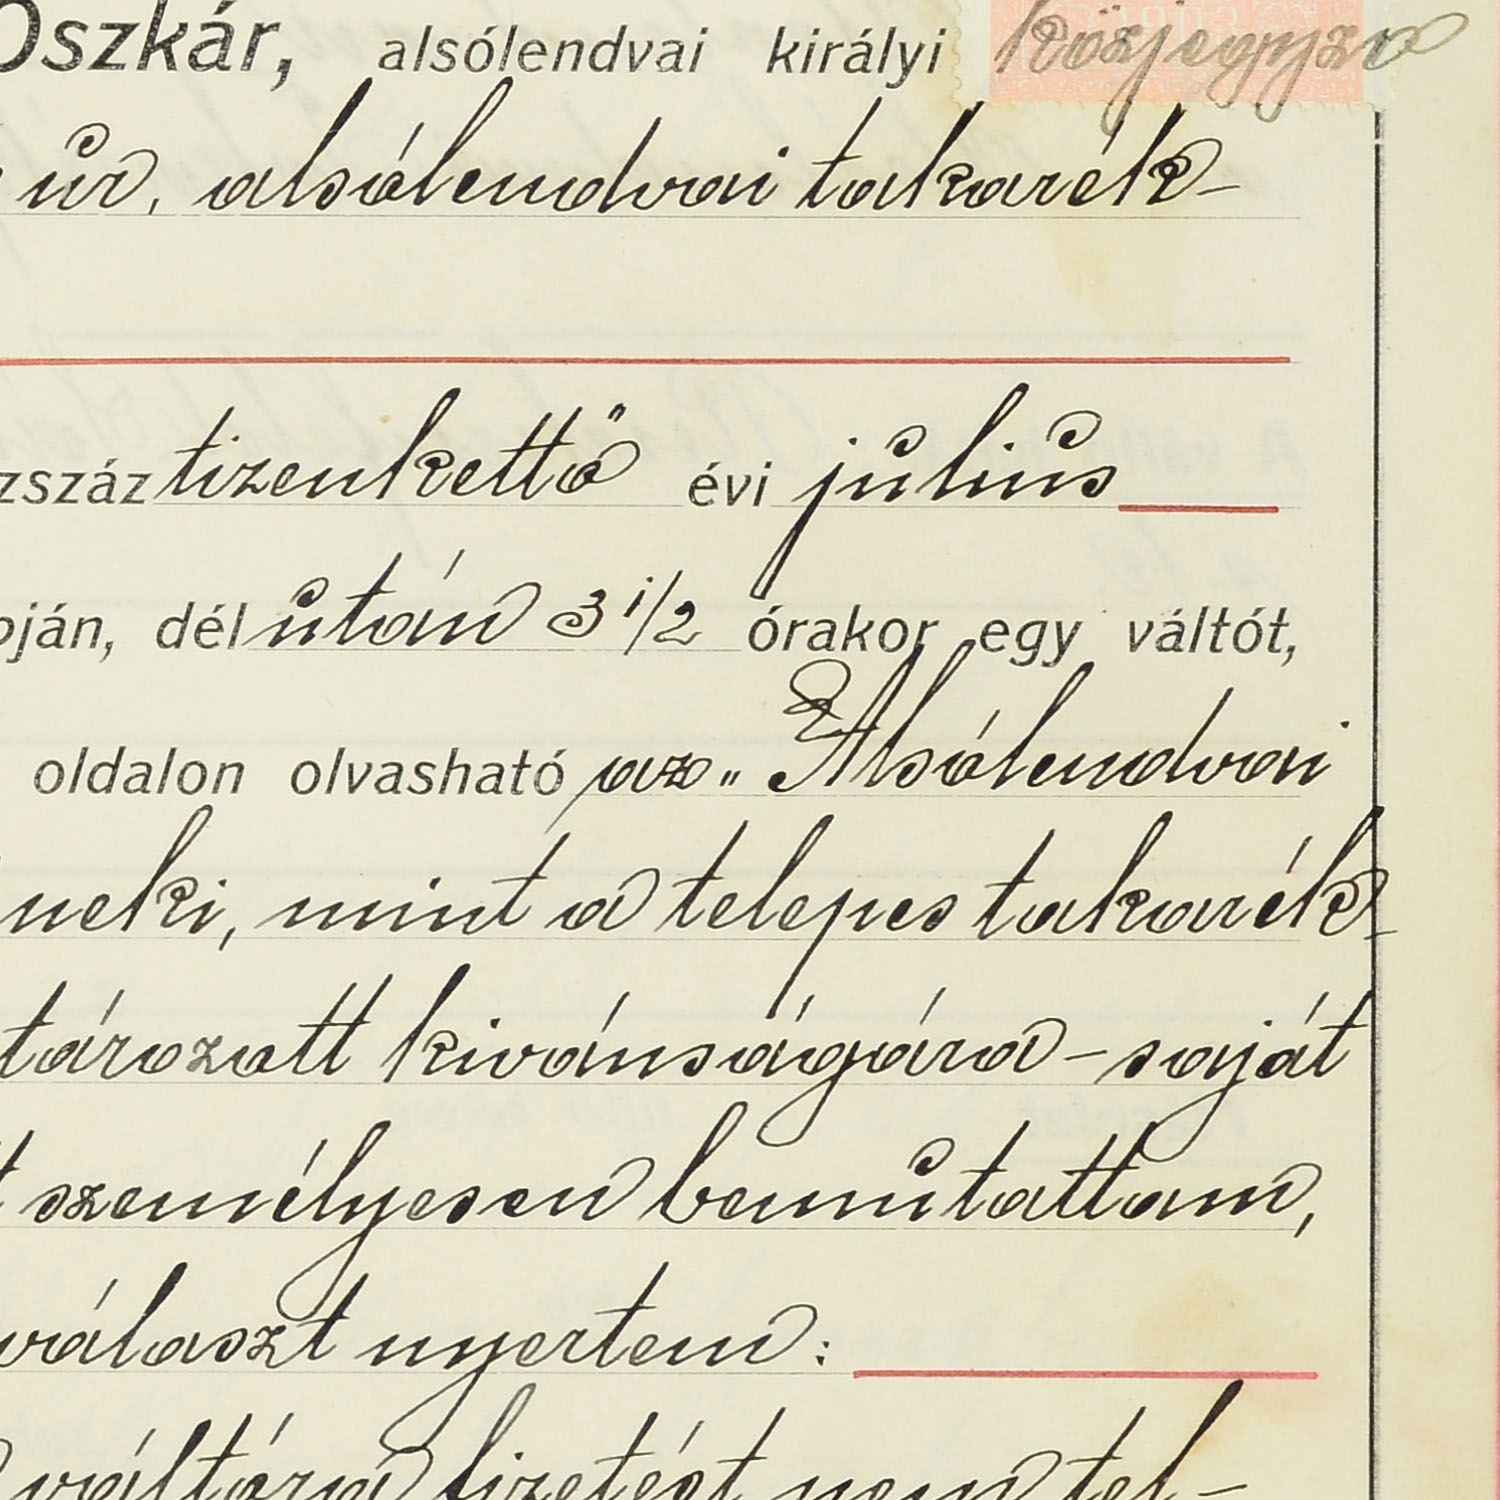 Oszkár, alsólendvai királyi közjegyző
úr, alsólendvai takarék-
zszáz tizenkettő évi július
pján, dél után 3 1/2 órakor egy váltót,
oldalon olvasható az „Alsólendvai
neki, mint a telepes takarék-
tározott kivánságára - saját
t személyesen bemutattam,
választ nyertem:
váltóra fizetést nem tel-